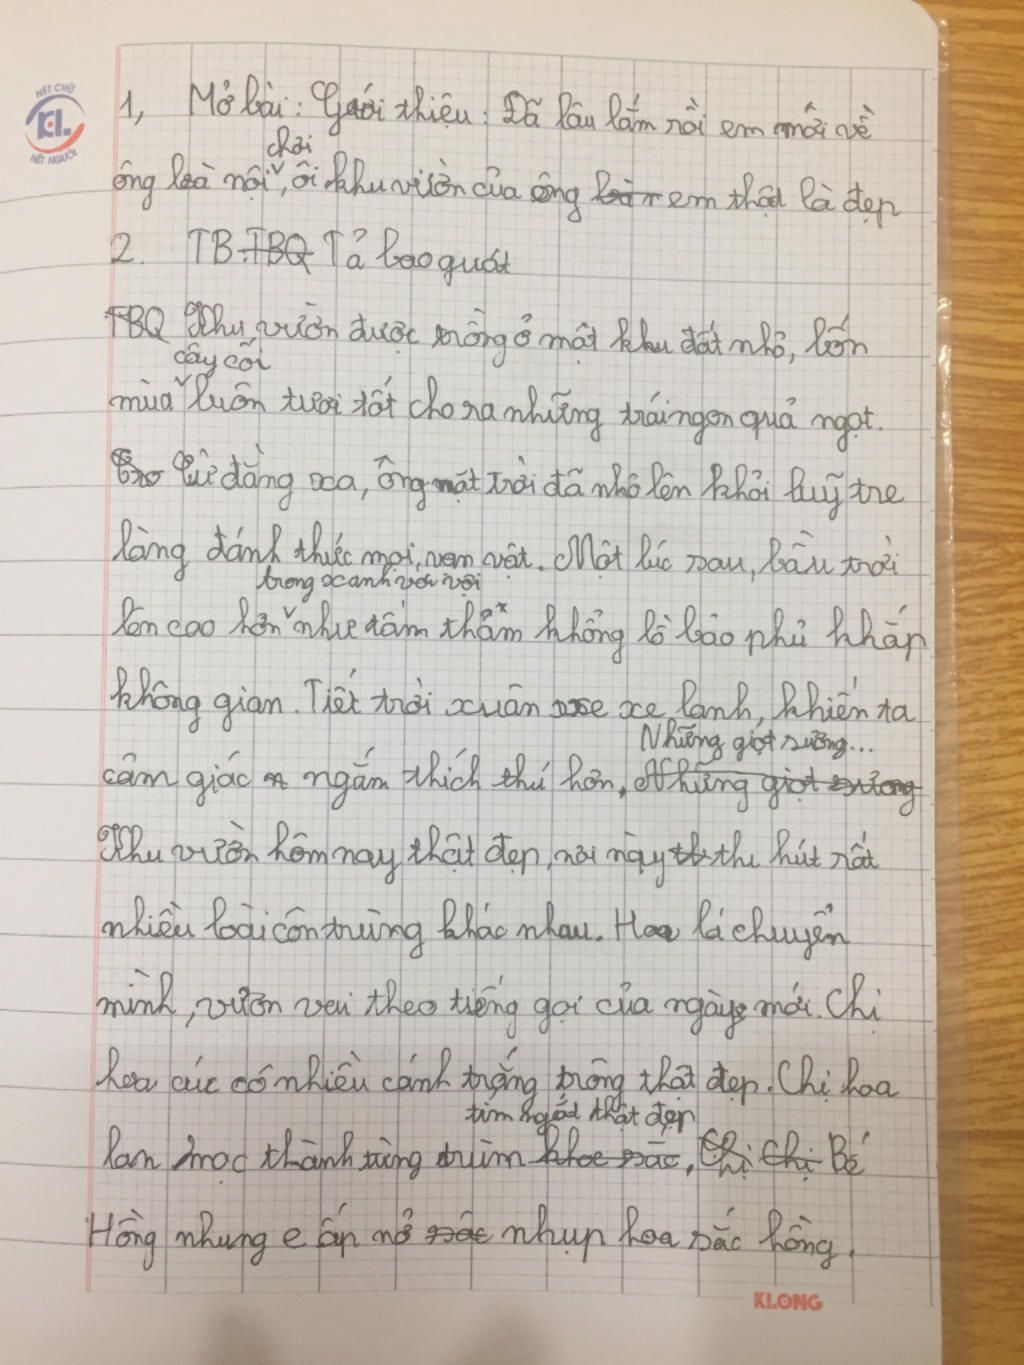 NÉT CHỮ
KL
NẾT NGƯỜI
1, Mở bài: Giới thiệu: Đã lâu lắm rồi em mới về
chơi
ông bà nội, ôi khu vườn của ông em thật là đẹp
2. TB. TBQ Tả bao quát
TBQ Khu vườn được trồng ở một khu đất nhỏ, bốn
cây cối
mùa luôn tươi tốt cho ra những trái ngon quả ngọt.
Từ đằng xa, ông mặt trời đã nhô lên khỏi luỹ tre
làng đánh thức mọi vật. Một lúc sau, bầu trời
trong xanh vời vợi
lên cao hơn như tấm thảm khổng lồ bao phủ khắp
không gian. Tiết trời xuân se lạnh, khiến ta
Những giọt sương...
cảm giác ngắm thích thú hơn, Những giọt sương
Khu vườn hôm nay thật đẹp, nơi này thu hút rất
nhiều loài côn trùng khác nhau. Hoa lá chuyển
mình, vươn vai theo tiếng gọi của ngày mới. Chị
hoa cúc có nhiều cánh trắng trông thật đẹp. Chị hoa
tím ngắt thật đẹp
lan mọc thành từng chùm khoe sắc, Chị Chị Bé
Hồng nhung e ấp nở sắc nhụp hoa sắc hồng.
KLONG